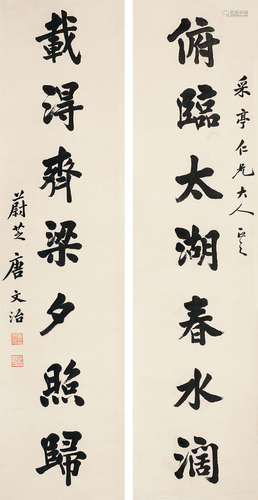 俯臨太湖春水濶
采亭仁兄大人正之
載得齊梁夕照歸
蔚芝唐文治